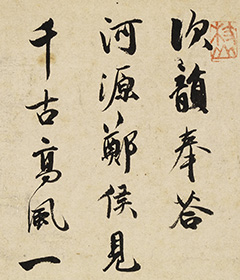 次韻奉答
河源鄭侯見
千古高風一